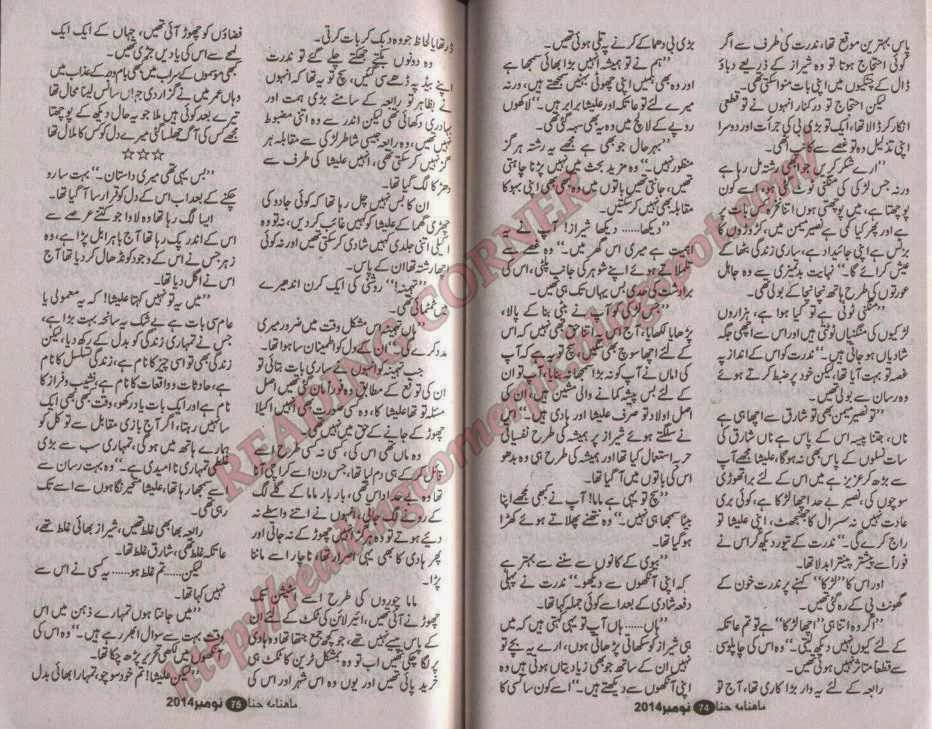 پاس بہترین موقع تھا، ندرت کی طرف سے اگر
کوئی احتجاج ہوتا تو وہ شیراز کے ذریعے دباؤ
ڈال کے چٹکیوں میں اپنی بات منوا سکتی تھی۔
لیکن احتجاج تو درکنار انہوں نے تو قطعی
انکار کر ڈالا تھا، ایک تو بڑی بی کی جرأت اور دوسرا
اپنی تذلیل وہ تو غصے سے کانپ اٹھی۔
"ارے شکر کریں جو ابھی رشتہ مل رہا ہے
ورنہ جس لڑکی کی منگنی ٹوٹ چکی ہو، اسے کون
پوچھتا ہے، میں پوچھتی ہوں اتنا غرور کس بات پر
ہے اور پھر کیا کمی ہے نصیر میمن میں، کروڑوں کا
بزنس ہے اپنی جائیداد ہے، ساری زندگی بٹھا کے
عیش کرائے گا۔" نہایت بدتمیزی سے وہ جاہل
عورتوں کی طرح ہاتھ نچا نچا کے بولی تھی۔
"منگنی ٹوٹی ہے تو کیا ہوا ہے، ہزاروں
لڑکیوں کی منگنیاں ٹوٹتی ہیں اور اس سے اچھی جگہ
شادیاں ہو جاتی ہیں۔" ندرت کو اس کے انداز پہ
غصہ تو بہت آیا تھا، لیکن خود پر ضبط کرتے ہوئے
وہ رسان سے بولی تھیں۔
"تو نصیر میمن بھی تو شارق سے اچھا ہی ہے
ناں، جتنا پیسہ اس کے پاس ہے ناں شارق کی
سات نسلوں کے پاس بھی نہ ہوگا، علیشا مجھے آپ
سے بڑھ کر عزیز ہے میں اس کے لئے برا تھوڑی
سوچوں گی، نصیر بے حد اچھا لڑکا ہے، کوئی بری
عادت نہیں نہ سسرال کا جھنجھٹ، اپنی علیشا تو
راج کرے گی۔" ندرت کے تیور دیکھ کر اس نے
فوراً سے پیشتر پینترا بدلا تھا۔
اور اس کا "لڑکا" کہنے پر ندرت خون کے
گھونٹ پی کے رہ گئی تھیں۔
"اگر وہ اتنا ہی "اچھا لڑکا" ہے تو تم عاتکہ
کے لئے کیوں نہیں دیکھ لیتی۔" وہ اس کی چاپلوسی
سے قطعاً متاثر نہیں ہوئی تھیں۔
رابعہ کے لئے یہ وار بڑا کاری تھا، آج تو
بڑی بی دھماکے کرنے پر تلی ہوئی تھیں۔
"ہم نے تو ہمیشہ انہیں بڑا بھائی سمجھا ہے
اور وہ بھی ہمیں اپنی چھوٹی بہنیں سمجھتے ہیں، ورنہ
میرے لئے تو عاتکہ اور علیشا برابر ہیں۔" لاکھوں
روپے کے لالچ میں وہ یہ بھی سہہ گئی تھی۔
"بہر حال جو بھی ہے مجھے یہ رشتہ ہرگز
منظور نہیں۔" وہ مزید بحث میں نہیں پڑنا چاہتی
تھیں، جانتی تھیں باتوں میں وہ کبھی بھی اپنی بہو کا
مقابلہ نہیں کر سکتیں۔
"دیکھا...... دیکھا شیراز! آپ نے یہ
اہمیت ہے میری اس گھر میں۔" وہ غصے سے
تلملاتے ہوئے اپنے شوہر کی جانب پلٹی، اس کی
برداشت کی حد بس یہاں تک ہی تھیں۔
"جس لڑکی کو آپ نے بیٹی بنا کے پالا،
پڑھایا لکھایا، آج آپ کا اتنا حق بھی نہیں کہ اس
کے لئے اچھا سوچ بھی سکیں، سچ تو یہ ہے کہ آپ
کی اماں نے آپ کو نہ بڑا سمجھا نہ بیٹا، آپ تو ان
کے لئے بس پیسہ کمانے والی مشین ہیں، ان کی
اصل اولاد تو صرف علیشا اور ہادی ہیں۔" اس
نے سلگتے ہوئے شیراز پر ہمیشہ کی طرح نفسیاتی
حربہ استعمال کیا تھا اور ہمیشہ کی طرح ہی وہ بدھو
اس کی باتوں میں آگیا تھا۔
"سچ تو یہی ہے ماما! آپ نے کبھی مجھے اپنا
بیٹا سمجھا ہی نہیں۔" وہ نتھنے پھلاتے ہوئے کھڑا
ہوگیا تھا۔
"بیوی کے کانوں سے سننے سے بہتر ہے
کہ اپنی آنکھوں سے دیکھو۔" ندرت نے پہلی
دفعہ شادی کے بعد اسے کوئی جملہ کہا تھا۔
"ہاں...... ہاں آپ تو یہی کہتی ہیں کہ میں
ہی شیراز کو سکھاتی پڑھاتی ہوں، ارے یہ بچے تو
نہیں ان کے ساتھ جو بھی زیادتیاں ہوتی ہیں وہ
اپنی آنکھوں سے دیکھتے ہیں۔" اسے کون سا کسی کا
ماهنامه حنا 74 نومبر 2014
ڈر تھا یا لحاظ جو وہ دبک کر بات کرتی۔
وہ دونوں بکتے جھکتے چلے گئے تو ندرت
اپنے بیڈ پہ ڈھے سی گئیں، سچ تو یہ تھا کہ انہوں
نے بظاہر تو رابعہ کے سامنے بڑی ہمت اور
بہادری دکھائی تھی لیکن اندر سے وہ اتنی مضبوط
نہیں تھیں، وہ رابعہ جیسی شاطر لڑکی سے مقابلہ ہر
گز نہیں کر سکتی تھی، انہیں علیشا کی طرف سے
دھڑکا لگ گیا تھا۔
ان کا بس نہیں چل رہا تھا کہ کوئی جادو کی
چھڑی گھما کے علیشا کو کہیں غائب کر دیں، نہ تو وہ
اکیلی اتنی جلدی کہیں شادی کر سکتی تھیں اور نہ کوئی
اچھا رشتہ تھا ان کے پاس۔
"تہمینہ!" روشنی کی ایک کرن اندھیرے
میں ٹمٹمائی تھی۔
ہاں تہمینہ اس مشکل وقت میں ضرور میری
مدد کرے گی۔" ان کے دل کو اطمینان سا ہوا تھا۔
جب تہمینہ کو انہوں نے ساری بات بتائی تو
ان کی توقع کے مطابق وہ فوراً مان گئی تھیں اصل
مسئلہ تو تھا علیشا کا، وہ کسی صورت بھی انہیں اکیلا
چھوڑ کے جانے کے حق میں نہیں تھی۔
وہ ماں تھی اس کی، کسی نہ کسی طرح اسے
قائل کر کے ہی دم لیا تھا، جس دن اسے کراچی آنا
تھا وہ بے حد اداس تھی، بار بار ماما کے گلے لگ
کے رونے لگ جاتی، انہوں نے اتنے واسطے نہ
دئے ہوتے تو وہ ہرگز انہیں چھوڑ کے نہ جاتی اور
پھر ہادی کا بھی یہی اصرار تھا، ناچار اسے ماننا
پڑا۔
ماما چوروں کی طرح اسے اسٹیشن تک
چھوڑنے آئی تھیں، ائیر لائن کی ٹکٹ کے لئے ان
کے پاس پیسے نہیں تھے، جو کچھ جمع جتھا تھا وہ ہادی
پر لگا چکی تھیں اب تو وہ بمشکل ٹرین کا ٹکٹ ہی
خرید پائی تھیں اور یوں وہ اس شہر اور اس کی
فضاؤں کو چھوڑ آئی تھیں، جہاں کے ایک ایک
لمحے سے اس کی یادیں جڑی تھیں۔
کبھی موسموں کے سراب میں کبھی بام و در کے عذاب میں
وہاں عمر میں نے گزار دی جہاں سانس لینا محال تھا
تیرے بعد کوئی نہیں ملا جو یہ حال دیکھ کے پوچھتا
مجھے کس کی آگ جھلسا گئی میرے دل کو کس کا ملال تھا
☆☆☆
"بس یہی تھی میری داستان۔" بہت سا رو
چکنے کے بعد اب اس کے دل کو قرار سا آگیا تھا۔
ایسا لگ رہا تھا وہ لاوا جو کتنے عرصے سے
اس کے اندر پک رہا تھا آج باہر ابل پڑا ہے، وہ
زہر جس نے اس کے وجود کو نڈھال کر دیا تھا آج
اس نے اگل دیا تھا۔
"میں یہ تو نہیں کہتا علیشا! کہ یہ معمولی یا
عام سی بات ہے بے شک یہ سانحہ بہت بڑا ہے،
جس نے تمہاری زندگی کو بدل کے رکھ دیا، لیکن
زندگی بھی تو اسی چیز کا نام ہے، زندگی تسلسل کا نام
ہے، حادثات و واقعات کا نام ہے، نشیب و فراز کا
نام ہے اور ایک بات یاد رکھو، وقت کبھی بھی ایک
سا نہیں رہتا، اگر آج بازی مقابل ہے تو کل کو
ہمارے ہاتھ میں ہوگی، تمہاری سب سے بڑی
غلطی تمہاری نا امیدی ہے۔" وہ بہت رسان سے
اسے سمجھا رہا تھا، علیشا متحیر نگاہوں سے اسے تک
رہی تھی۔
رابعہ بھابھی غلط تھیں، شیراز بھائی غلط تھے،
عاتکہ غلط تھی، شارق غلط تھا۔
لیکن...... تم غلط ہو...... یہ کسی نے اس سے
نہیں کہا تھا۔
"میں جانتا ہوں تمہارے ذہن میں اس
وقت بہت سے سوال ابھر رہے ہیں۔" وہ اس کی
آنکھوں میں لکھی تحریر پڑھ چکا تھا۔
"لیکن علیشا! تم خود سوچو، تمہارا بھائی بدل
ماهنامه حنا 75 نومبر 2014
READING CORNER
http://readingcornerpk.blogspot.com